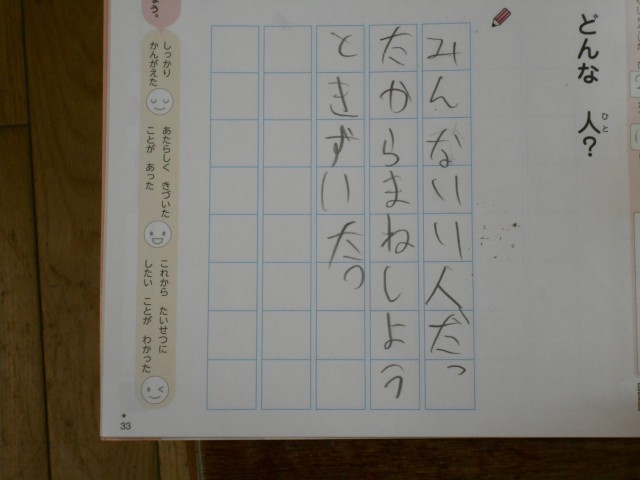 どんな 人?
ひと
みんないい人だっ
たからまねしよう
ときずいたっ
う。
しっかり
かんがえた
あたらしく きづいた
ことが あった
これから たいせつに
したい ことが わかった
33